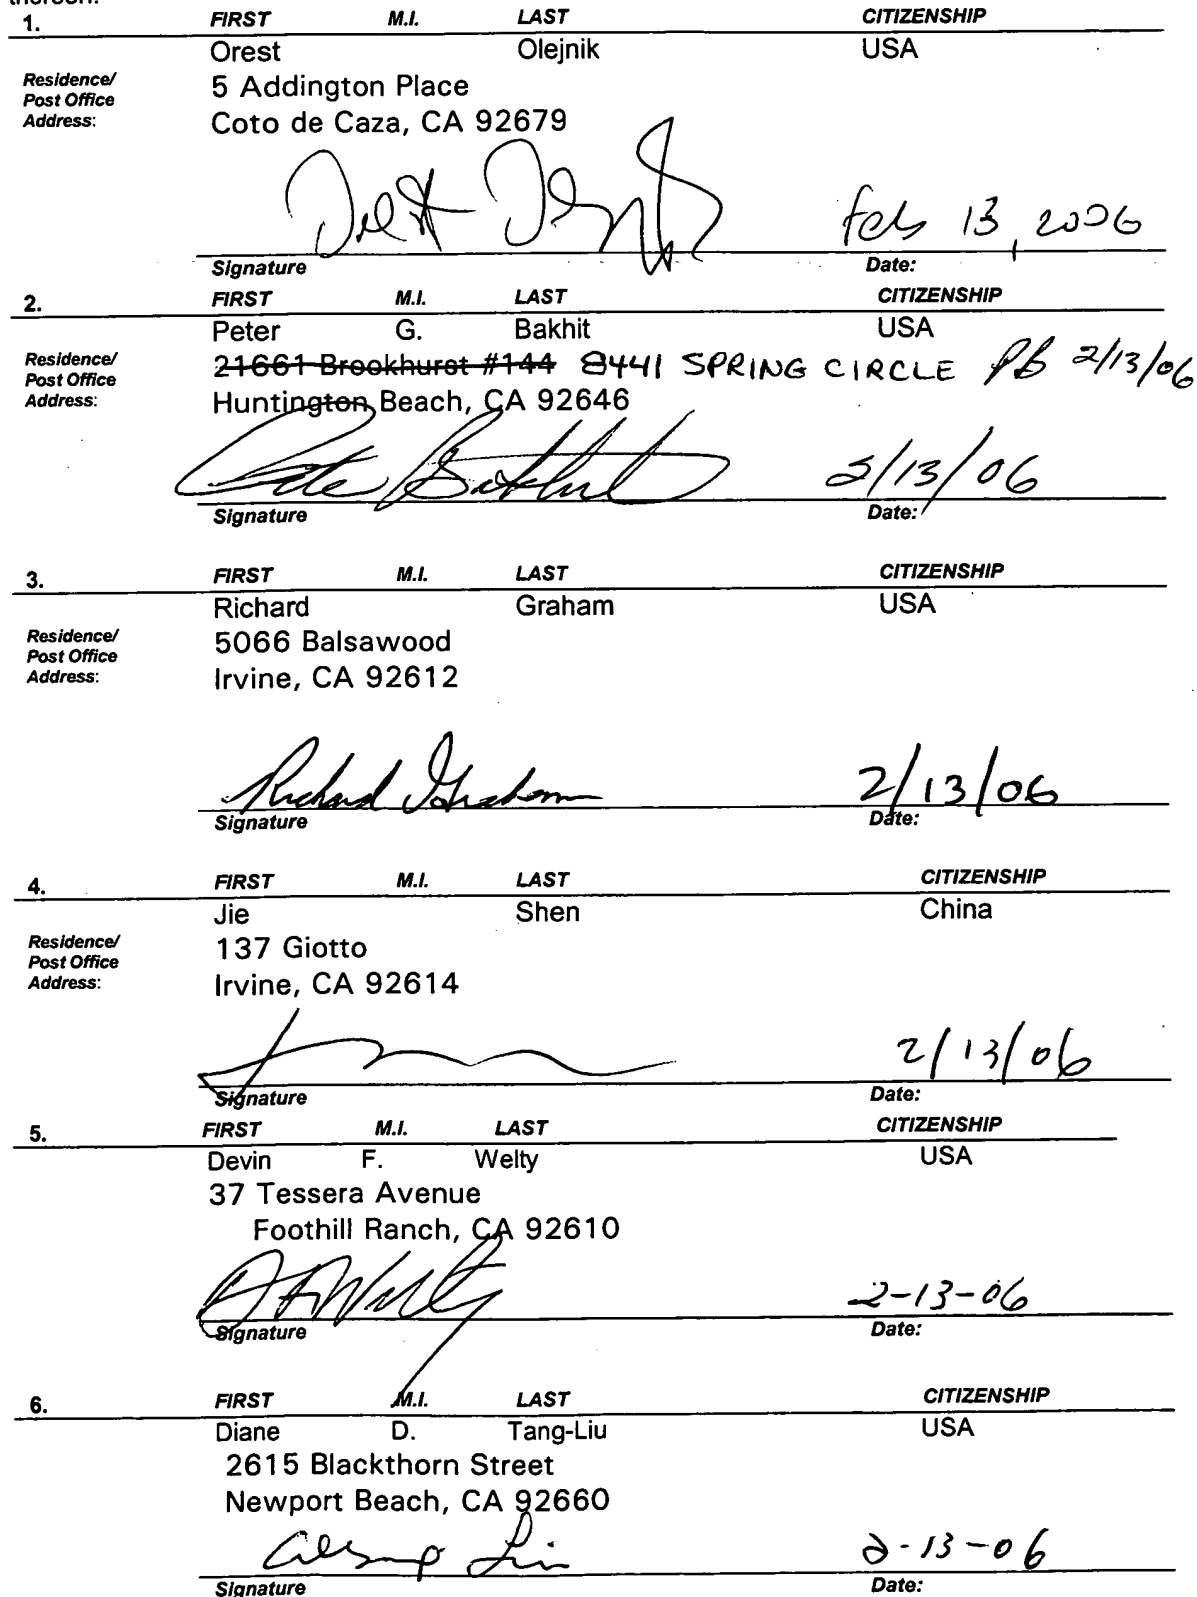 thereon.
1. FIRST M.I. LAST CITIZENSHIP
Orest Olejnik USA
Residence/ 5 Addington Place
Post Office
Address: Coto de Caza, CA 92679
Feb 13, 2006
Signature Date:
2. FIRST M.I. LAST CITIZENSHIP
Peter G. Bakhit USA
Residence/ 21661 Brookhurst #144 8441 SPRING CIRCLE PB 2/13/06
Post Office
Address: Huntington Beach, CA 92646
Pete Bakhit 2/13/06
Signature Date:
3. FIRST M.I. LAST CITIZENSHIP
Richard Graham USA
Residence/ 5066 Balsawood
Post Office
Address: Irvine, CA 92612
Richard Graham 2/13/06
Signature Date:
4. FIRST M.I. LAST CITIZENSHIP
Jie Shen China
Residence/ 137 Giotto
Post Office
Address: Irvine, CA 92614
2/13/06
Signature Date:
5. FIRST M.I. LAST CITIZENSHIP
Devin F. Welty USA
37 Tessera Avenue
Foothill Ranch, CA 92610
2-13-06
Signature Date:
6. FIRST M.I. LAST CITIZENSHIP
Diane D. Tang-Liu USA
2615 Blackthorn Street
Newport Beach, CA 92660
2-13-06
Signature Date: